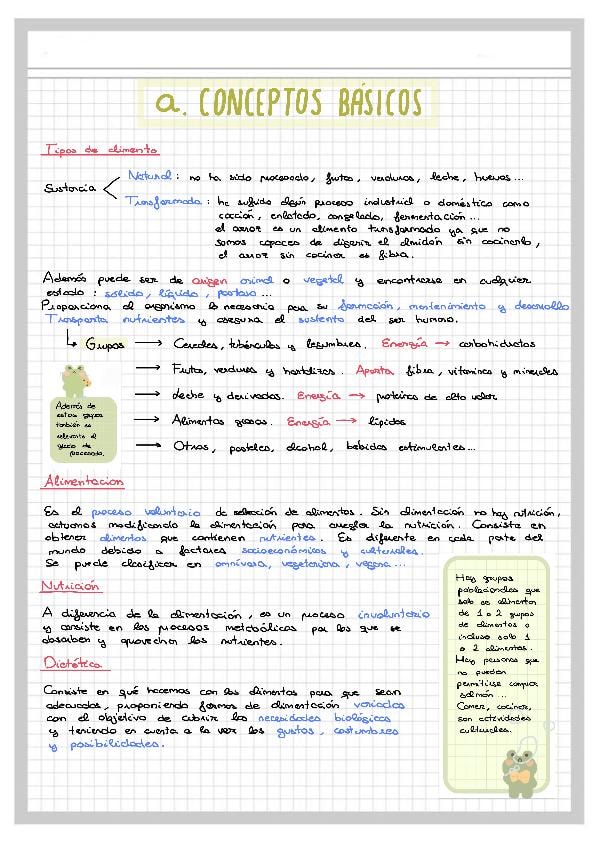 a. CONCEPTOS BÁSICOS
Tipos de alimento
Sustancia
Natural: no ha sido procesado, frutas, verduras, leche, huevos...
Transformada: ha sufrido algún proceso industrial o doméstico como
cocción, enlatado, congelado, fermentación...
el arroz es un alimento transformado ya que no
somos capaces de digerir el almidón sin cocinarlo,
el arroz sin cocinar es fibra.
Además puede ser de origen animal o vegetal y encontrarse en cualquier
estado: sólido, líquido, pastoso...
Proporciona al organismo lo necesario para su formación, mantenimiento y desarrollo
Transporta nutrientes y asegura el sustento del ser humano.
↳ Grupos → Cereales, tubérculos y legumbres. Energía → carbohidratos
→ Frutas, verduras y hortalizas. Aporta fibra, vitaminas y minerales
→ Leche y derivados. Energía → proteínas de alto valor
→ Alimentos grasos. Energía → lípidos
→ Otros, pasteles, alcohol, bebidas estimulantes...
Además de
estos grupos
también es
relevante el
grado de
procesado.
Alimentacion
Es el proceso voluntario de selección de alimentos. Sin alimentación no hay nutrición,
actuamos modificando la alimentación para arreglar la nutrición. Consiste en
obtener alimentos que contienen nutrientes. Es diferente en cada parte del
mundo debido a factores socioeconómicos y culturales.
Se puede clasificar en omnívora, vegetariana, vegana...
Nutrición
A diferencia de la alimentación, es un proceso involuntario
y consiste en los procesos metabólicos por los que se
absorben y aprovechan los nutrientes.
Dietética
Consiste en qué hacemos con los alimentos para que sean
adecuados, proponiendo formas de alimentación variadas
con el objetivo de cubrir las necesidades biológicas
y teniendo en cuenta a la vez los gustos, costumbres
y posibilidades.
Hay grupos
poblacionales que
solo se alimentan
de 1 o 2 grupos
de alimentos o
incluso solo 1
o 2 alimentos.
Hay personas que
no pueden
permitirse comprar
salmón...
Comer, cocinar,
son actividades
culturales.